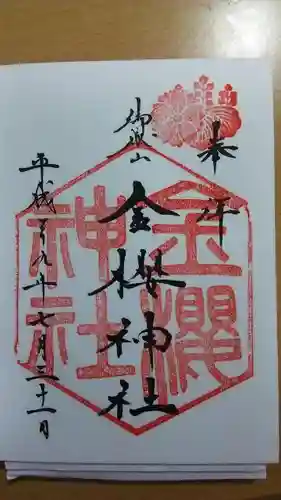 奉拝
御嶽山
金櫻神社
平成二十九年七月三十一日
金櫻神社